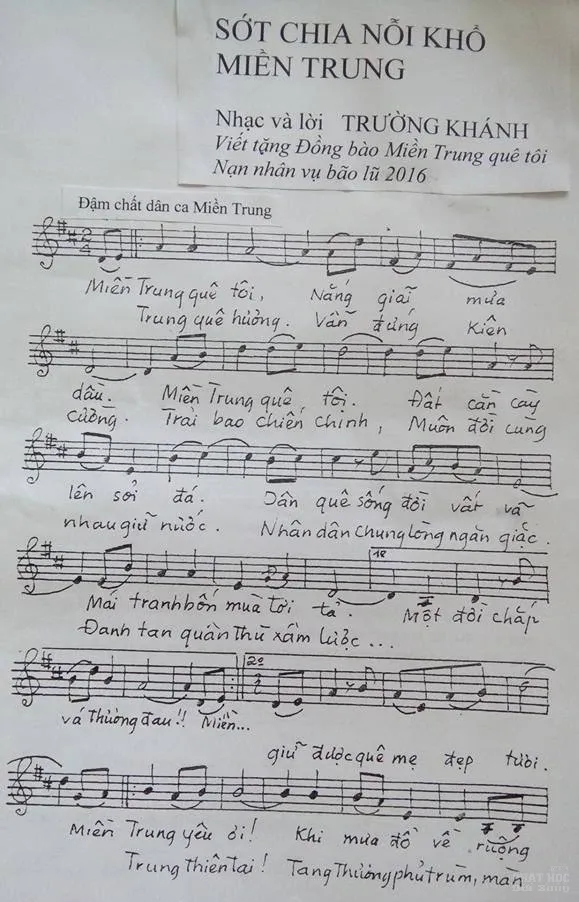 SỚT CHIA NỖI KHỔ
MIỀN TRUNG
Nhạc và lời TRƯỜNG KHÁNH
Viết tặng Đồng bào Miền Trung quê tôi
Nạn nhân vụ bão lũ 2016
Đậm chất dân ca Miền Trung
2/4
Miền Trung quê tôi, Nắng giãi mưa
Trung quê hương. Vẫn đứng Kiên
dầu. Miền Trung quê, tôi. Đất cằn cày
cường. Trải bao chiến chinh, Muôn đời cùng
lên sỏi đá. Dân quê sống đời vất vã
nhau giữ nước. Nhân dân chung lòng ngăn giặc.
1º
Mái tranh bốn mùa tơi tả. Một đời chắp
Đánh tan quân thù xâm lược...
2º
vá thương đau!! Miền...
giữ được quê mẹ đẹp tươi.
Miền Trung yêu ơi! Khi mưa đổ về ruộng
Trung thiên tai! Tang thương phủ trùm, màn